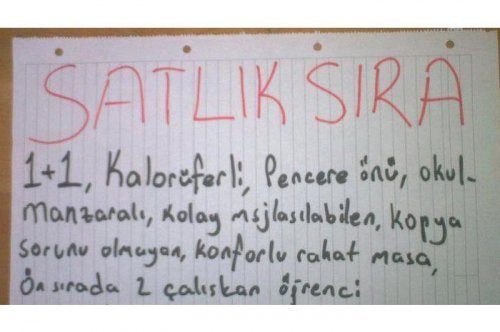 SATLIK SIRA
1+1, Kalorüferli, Pencere önü, okul-
manzaralı, kolay msjlasılabilen, kopya
sorunu olmayan, konforlu rahat masa,
Ön sırada 2 çalıskan öğrenci